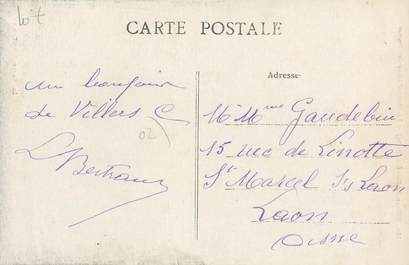 CARTE POSTALE
un bonjour
de Villers C
02
L Bertrand
Adresse
M Mme Gaudebin
15 rue de Linotte
St Marcel s/s Laon
Laon
Aisne